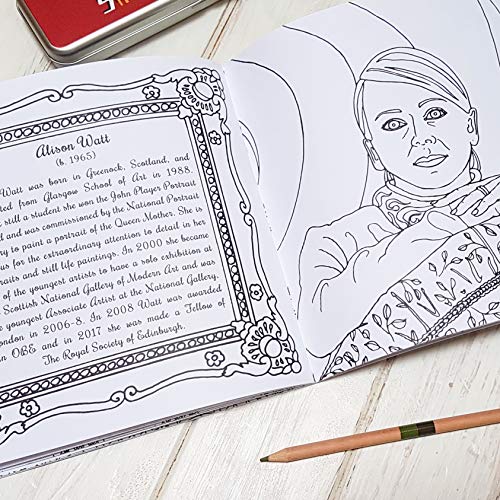 Alison Watt
(b. 1965)
Watt was born in Greenock, Scotland, and
from Glasgow School of Art in 1988.
still a student she won the John Player Portrait
and was commissioned by the National Portrait
to paint a portrait of the Queen Mother. She is
for the extraordinary attention to detail in her
and still life paintings. In 2000 she became
of the youngest artists to have a solo exhibition at
Scottish National Gallery of Modern Art and was
youngest Associate Artist at the National Gallery,
in 2006-8. In 2008 Watt was awarded
an OBE and in 2017 she was made a Fellow of
The Royal Society of Edinburgh.